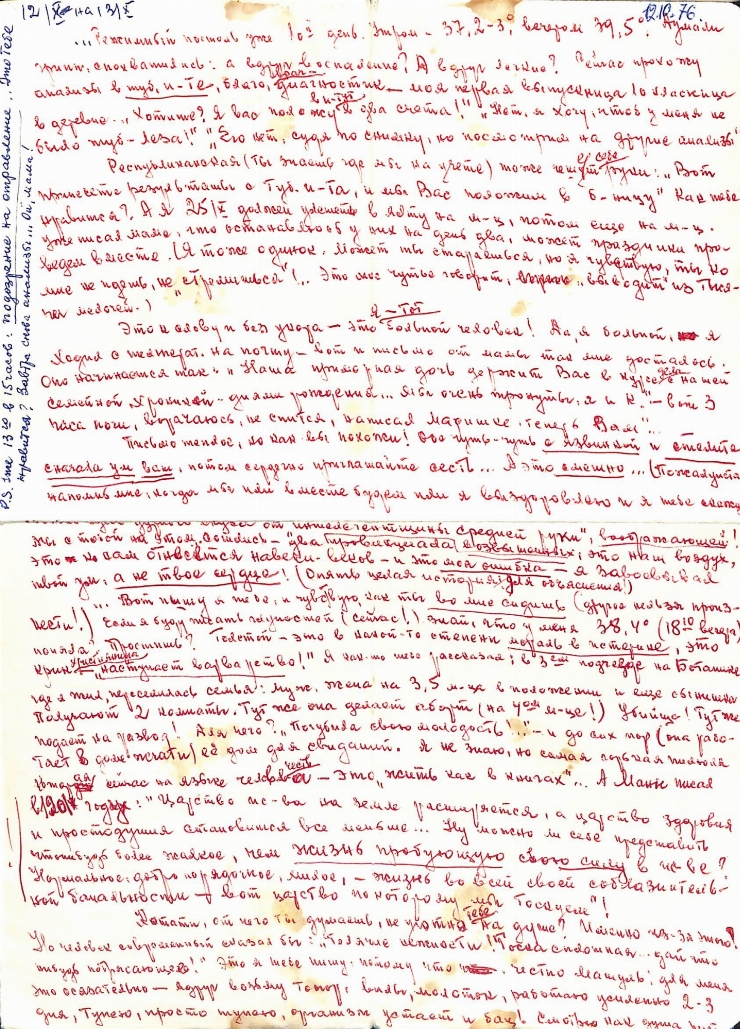 12/X на 13/X
12.IX.76
..."Режимный постель уже 10й день. Утром – 37,2-3°, вечером 39,5°. Думали
грипп, спохватились: а вдруг воспаление? А вдруг легкие? Сейчас прохожу
анализы в туб. и-те, благо, врач-диагностик – моя первая выпускница 10 классница
в деревне. – "Хотите? Я вас положу в и-тут в два счета!" "Нет, я хочу, чтоб у меня не
было туб-леза!" "Его нет, судя по снимку, но посмотрим на другие анализы"
Республиканская (ты знаешь где мы на учёте) тоже чешут себе руки: "Вот
принесете результаты с Туб. и-та, и мы Вас положим в б-ницу" Как тебе
нравится? А я 25/X должен улететь в Ялту на м-ц, потом еще на м-ц.
Уже писал маме, что остановлюсь у них на день два, может праздники про-
ведем вместе. (Я тоже одинок. Может ты стараешься, но я чувствую, ты ко
мне не идешь, не "стремишься"!... Это мое чутье говорит, "выводит" из тыся-
чи мелочей.)
Это к слову и без укора – это я – тот больной человек! Да, я больной, я
ходил с температ. на почту – вот и письмо от мамы там мне досталось.
Оно начинается так: – "Наша примерная дочь держит Вас в курсе дела нашей
семейной хроники – днями рождений... Мы очень тронуты: я и К." – вот 3
часа ночи, ворочаюсь, не спится, написал Маришке. теперь Вам"...
Письмо теплое, но как вы похожи! Оба чуть-чуть с язвинкой и
сначала ум ваш, потом сердечно приглашаете сесть... А это смешно... (Пожалуйста
напомни мне, когда мы или вместе будем или я выздоровлю и я тебе скажу
от интеллигентщины средней руки, воображающей!
мы с тобой на этом сошлись – "два провинциала возвышенных": это наш воздух,
это к вам относится навеки-веков – и это моя ошибка – я завоевывал
твой ум, а не твое сердце! (Опять целая история для объяснения!)
... Вот пишу я тебе, и чувствую, как ты во мне сидишь (другое нельзя произ-
нести!) Если я буду писать глупостей (сейчас!) знай, что у меня 38,4° (18 10 вечера)
поняла? Простишь? Толстой – это в какой-то степени модаль в истерике, это
крик христианина "наступает варварство!" Я как-то тебе рассказал; в 3ем подъезде на Ботанике
где я жил, переселилась семья: муж, жена на 3,5 м-це в положении и еще
Получают 2 комнаты. Тут же она делает аборт (на 4ом м-це!) Убийца! Тут же
подает на развод! Для чего? "Погубила свою молодость"..." – и до сих пор (она рабо-
тает в доме печати) её дом для свиданий. Я не знаю, но самая горькая пилюля
которая сейчас на языке человечества – это "жить как в книгах"... А Манн писал
в 1901 году: "Царство ис-ва на земле расширяется, а царство здоровья
и простодушия становится все меньше... Ну можно ли себе представить
что-нибудь более жалкое, чем жизнь пробующую свою силу в ис-ве?
Нормальное, добропорядочное, милое, – жизнь во всей своей соблазнитель-
ной банальности – вот царство по которому мы тоскуем"!
Котати, от чего ты думаешь, не уютно тебе на душе? Именно из-за этого!
Но человек современный сказал бы: "Телячие нежности! Тоска сплошная... дай что
нибудь потрясающее!" Это я тебе пишу: потому что честно Машуль: для меня
это осязательно – вдруг возьму топор, вилы, молоток, работаю усиленно 2-3
дня, Тупею, просто тупею, организм устает и бац! Смотрю как
P.S. уже 13го в 15 часов: подозрение на отравление... Это тебе
нравится? Завтра снова анализы... Ой, мама!